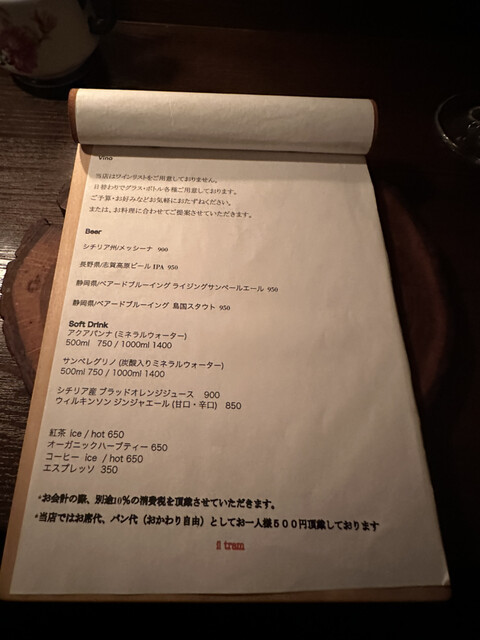 Vino
当店はワインリストをご用意しておりません。
日替わりでグラス・ボトル各種ご用意しております。
ご予算・お好みなどお気軽におたずねください。
または、お料理に合わせてご提案させていただきます。
Beer
シチリア州/メッシーナ 900
長野県/志賀高原ビール IPA 950
静岡県/ベアードブルーイング ライジングサンペールエール 950
静岡県/ベアードブルーイング 島国スタウト 950
Soft Drink
アクアパンナ (ミネラルウォーター)
500ml 750 / 1000ml 1400
サンペレグリノ (炭酸入りミネラルウォーター)
500ml 750 / 1000ml 1400
シチリア産 ブラッドオレンジジュース 900
ウィルキンソン ジンジャエール (甘口・辛口) 850
紅茶 ice / hot 650
オーガニックハーブティー 650
コーヒー ice / hot 650
エスプレッソ 350
*お会計の際、別途10%の消費税を頂戴させていただきます。
*当店ではお席代、パン代（おかわり自由）としてお一人様500円頂戴しております
il tram